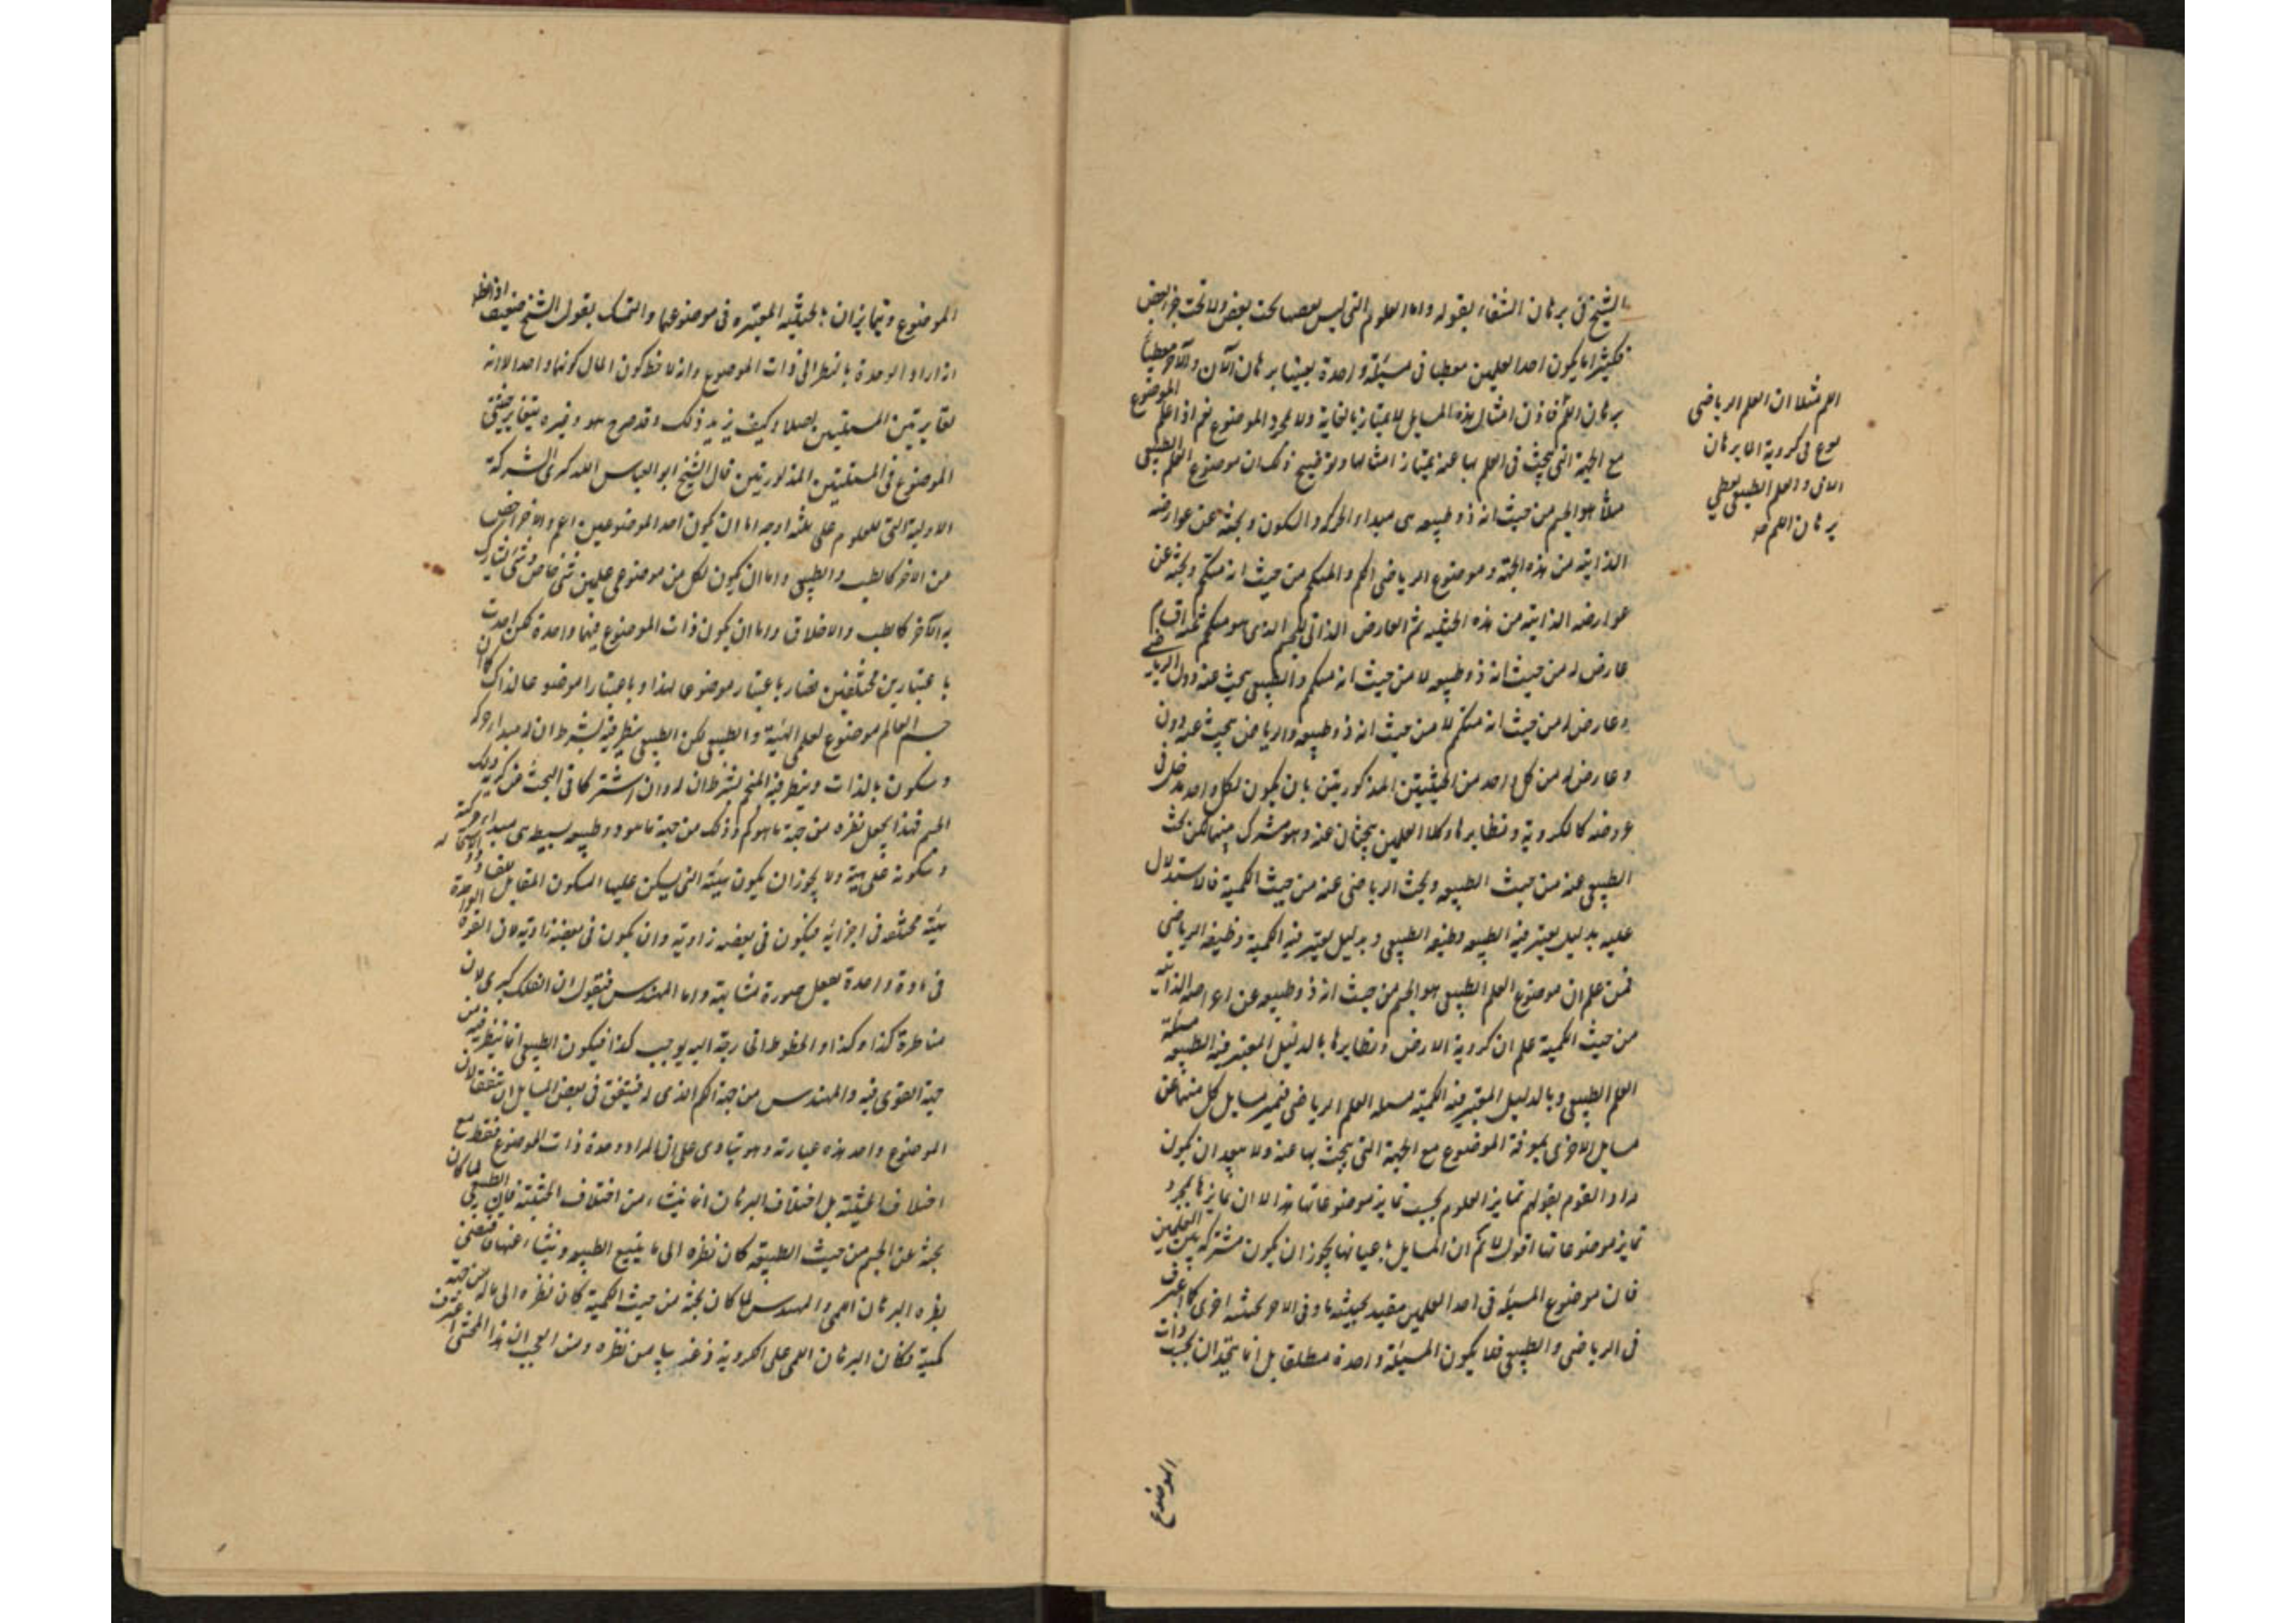 الشيخ في برهان الشفاء بقوله واما العلوم التي ليس بعضها تحت بعض ولا تحت جزء بعض
فكثيرا ما يكون احد العلمين معطيا في مسئلة واحدة بعينها برهان الان والآخر معطيا
برهان اللم فاذن امثال هذه المسايل لا يمتاز بالغاية ولا بمجرد الموضوع نعم اذا علم الموضوع
مع الجهة التي يبحث في العلم بها عنه يمتاز امثالها وتوضيح ذلك ان موضوع العلم الطبيعي
مثلا هو الجسم من حيث انه ذو طبيعه هى مبداء الحركه والسكون وبحثه عن عوارضه
الذاتية من هذه الجهة وموضوع الرياضى الكم والمتكمم من حيث انه متكمم وبحثه عن
عوارضه الذاتية من هذه الحيثيه ثم العارض الذاتى للجسم الذى هو متكمم ثلثه اقسام
عارض له من حيث انه ذو طبيعه لا من حيث انه متكمم والطبيعى يبحث عنه دون الرياضي
وعارض له من حيث انه متكمم لا من حيث انه ذو طبيعه والرياضى يبحث عنه دون
وعارض له من كل واحد من الحيثيتين المذكورتين بان يكون لكل واحد مدخل في
عروضه كالكروية ونظايرها وكلا العلمين يبحثان عنه وهو مشترك بينهما لكن بحث
الطبيعى عنه من حيث الطبيعه وبحث الرياضى عنه من حيث الكمية فالاستدلال
عليه بدليل يعتبر فيه الطبيعه وظيفه الطبيعى وبدليل يعتبر فيه الكمية وظيفه الرياضى
فمن علم ان موضوع العلم الطبيعى هو الجسم من حيث انه ذو طبيعه عن اعراضه الذاتية
من حيث الكمية علم ان كروية الارض ونظايرها بالدليل المعتبر فيه الطبيعه مسئلة
العلم الطبيعى وبالدليل المعتبر فيه الكمية مسئله العلم الرياضى فتميز مسايل كل منهما عن
مسايل الاخرى بمعرفة الموضوع مع الجهة التي يبحث بها عنه ولا يبعد ان يكون
مراد القوم بقولهم تمايز العلوم بحسب تمايز موضوعاتها هذا لا ان تمايزها بمجرد
تمايز موضوعاتها اقول لا نم ان المسايل باعيانها يجوز ان يكون مشتركة بين العلمين
فان موضوع المسئلة في احد العلمين مقيد بحيثية ما وفي الاخر بحيثية اخرى كما اعترف
في الرياضى والطبيعى فلا يكون المسئلة واحدة مطلقا بل انما يتحدان بحسب ذات
الموضوع
اللم مثلا ان العلم الرياضى
في كروية البرهان
الانى والعلم الطبيعى يعطي
برهان اللم منه
الموضوع ويتمايزان بالحيثيه المعتبره في موضوعهما والتمسك بقول الشيخ ضعيف اذ الظ
انه اراد الوحدة بالنظر الى ذات الموضوع وانه لاحظ كون المال كونها واحدا لا انه
تغاير بين المسئلتين اصلا وكيف يريد ذلك وقد صرح هو وغيره بتغاير حيثيتى
الموضوع في المسئلتين المذكورتين قال الشيخ ابو العباس اللوكرى الشركة
الاولية التي للعلوم على ثلثه اوجه اما ان يكون احد الموضوعين اعم والاخر اخص
من الاخر كالطب والطبيعى واما ان يكون لكل من موضوعى علمين شئ خاص وشئ يشارك
به الآخر كالطب والاخلاق واما ان يكون ذات الموضوع فيهما واحدة لكن اخذت
باعتبارين مختلفين فصار باعتبار موضوعا لهذا وباعتبار موضوعا لذاك كما ان
جسم العالم موضوع لعلمى الهيئة والطبيعى لكن الطبيعى ينظر فيه بشرط ان له مبداء حركة
وسكون بالذات وينظر فيه المنجم بشرط ان له كم وان اشتركا في البحث عن كروية ذلك
الجسم فهذا يجعل نظره من جهة ما هو كم وذلك من جهة ما هو ذو طبيعه بسيطه هى مبداء حركته
وسكونه على هيئة ولا يجوز ان يكون هيئته التي يسكن عليها السكون المقابل للحركة
هيئة مختلفه في اجزائه فيكون في بعضه زاويه وان يكون في بعضه زاوية لان القوة الواحدة
في مادة واحدة تفعل صورة متشابهة واما المهندس فيقول ان الفلك كرى لان
مناظره كذا وكذا والخطوط الخارجة اليه يوجب كذا فيكون الطبيعى انما ينظر فيه من
جهة القوى فيه والمهندس من جهة الكم الذى له فيتفق في بعض المسايل ان يتفقا لان
الموضوع واحد هذه عبارته وهو ينادى على ان المراد وحدة ذات الموضوع فقط مع
اختلاف الحيثية بل اختلاف البرهان انما ينشاء من اختلاف الحيثية فان الطبيعى لما كان
بحثه عن الجسم من حيث الطبيعة كان نظره الى ما يتبع الطبيعه وينشاء عنها فيقتضى
نظره البرهان اللمى والمهندس لما كان بحثه من حيث الكمية كان نظره الى ماله من جهة
كمية فكان البرهان اللمى على الكروية من نظره ومن العجب ان هذا المحشى اعترف